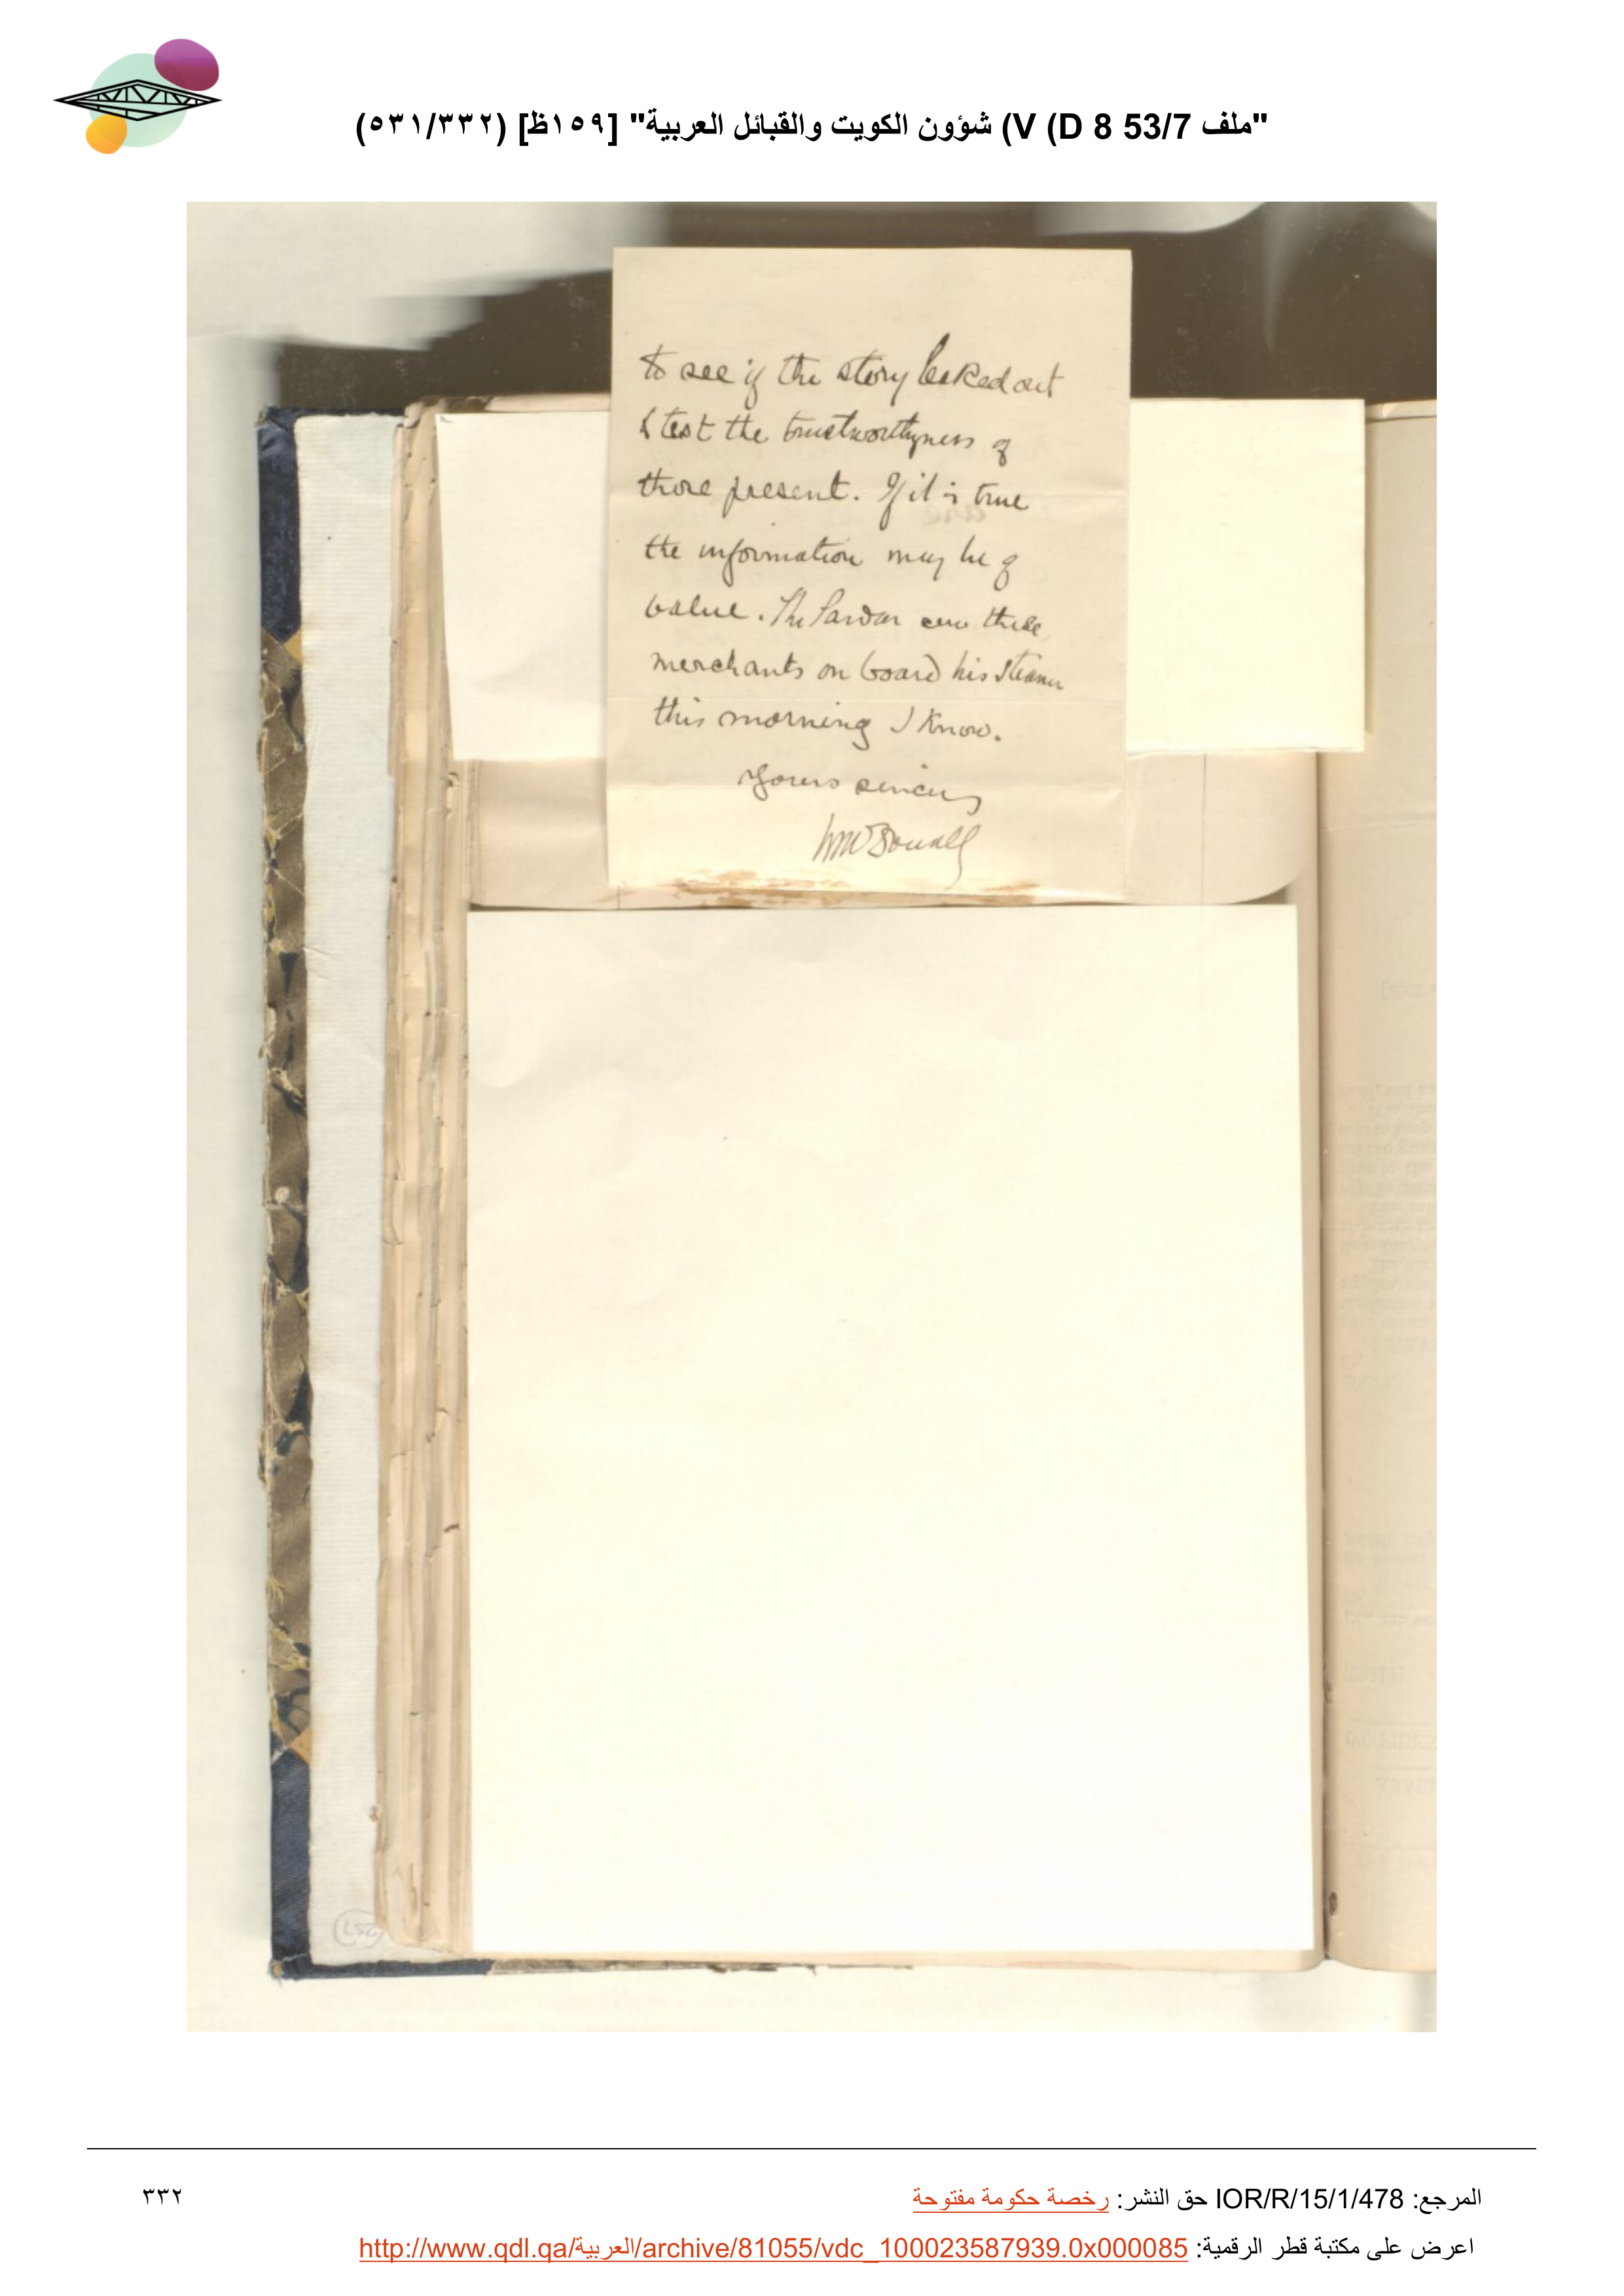 "ملف 53/7 V (D 8) شؤون الكويت والقبائل العربية" [١٥٩ظ] (٥٣١/٣٣٢)
to see if the story leaked out
& test the trustworthyness of
those present. If it is true
the information may be of
value. The Sardar saw these
merchants on board his steamer
this morning I know.
Yours sincey
WMcDouall
257
المرجع: IOR/R/15/1/478 حق النشر: رخصة حكومة مفتوحة
٣٣٢
اعرض على مكتبة قطر الرقمية: http://www.qdl.qa/العربية/archive/81055/vdc_100023587939.0x000085